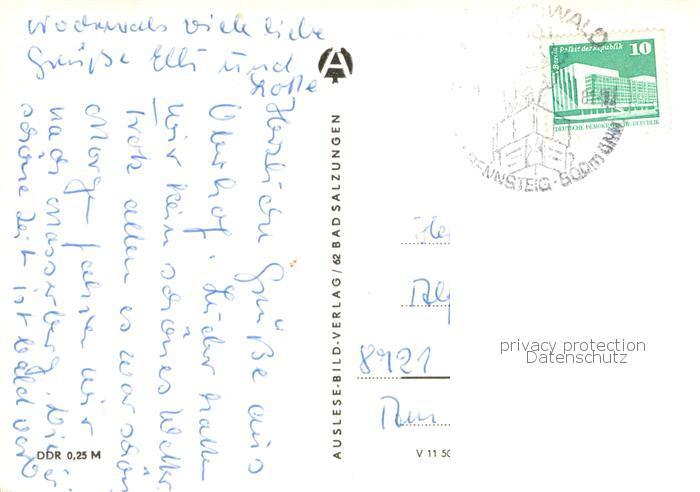 Nochmals viele liebe
Grüße Elli und
Lotte
Herzliche Grüße aus
Oberhof. Leider hatten
wir kein schönes Wetter
trotz allem es war schön
Morgen fahren wir
nach Wasserburg. Die
schöne Zeit ist bald vorbei
DDR 0,25 M
AUSLESE-BILD-VERLAG/62 BAD SALZUNGEN
A
V 11 50
WALD
RENNSTEIG · 800m ü.NN
Berlin, Palast der Republik
10
DEUTSCHE DEMOKRATISCHE REPUBLIK
8921
privacy protection
Datenschutz